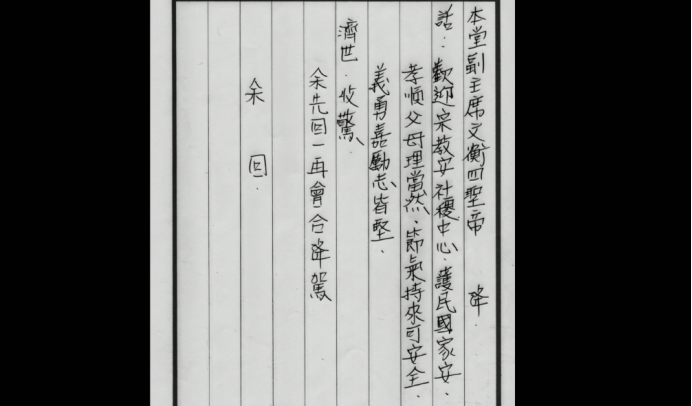 本堂副主席文衡四聖帝 降.
話：歡迎宗教安社稷中心.護民國家安.
孝順父母理當然、節氣持來可安全.
義勇嘉勵志皆堅.
濟世.收驚、
余先回一再會合降駕
余 回.